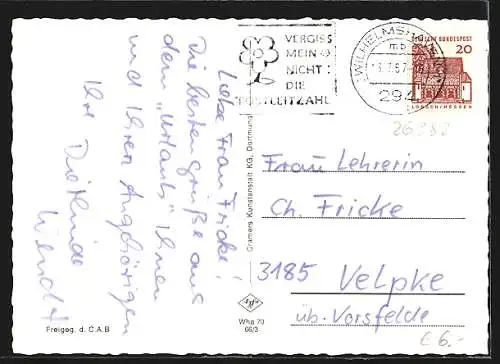 VERGISS
MEIN
NICHT
DIE
POSTLEITZAHL
WILHELMSHAVEN
mb
294
DEUTSCHE BUNDESPOST
20
LORSCH/HESSEN
26382
Liebe Frau Fricke!
Die besten Grüße aus
dem "Urlaub" Ihnen
und Ihren Angehörigen
Ihre Dietlinde
Wendt
Cramers Kunstanstalt KG, Dortmund
Frau Lehrerin
Ch. Fricke
3185 Velpke
üb. Vorsfelde
€ 6.-
Agfa
Whg 70
66/3
Freigeg. d. C.A.B